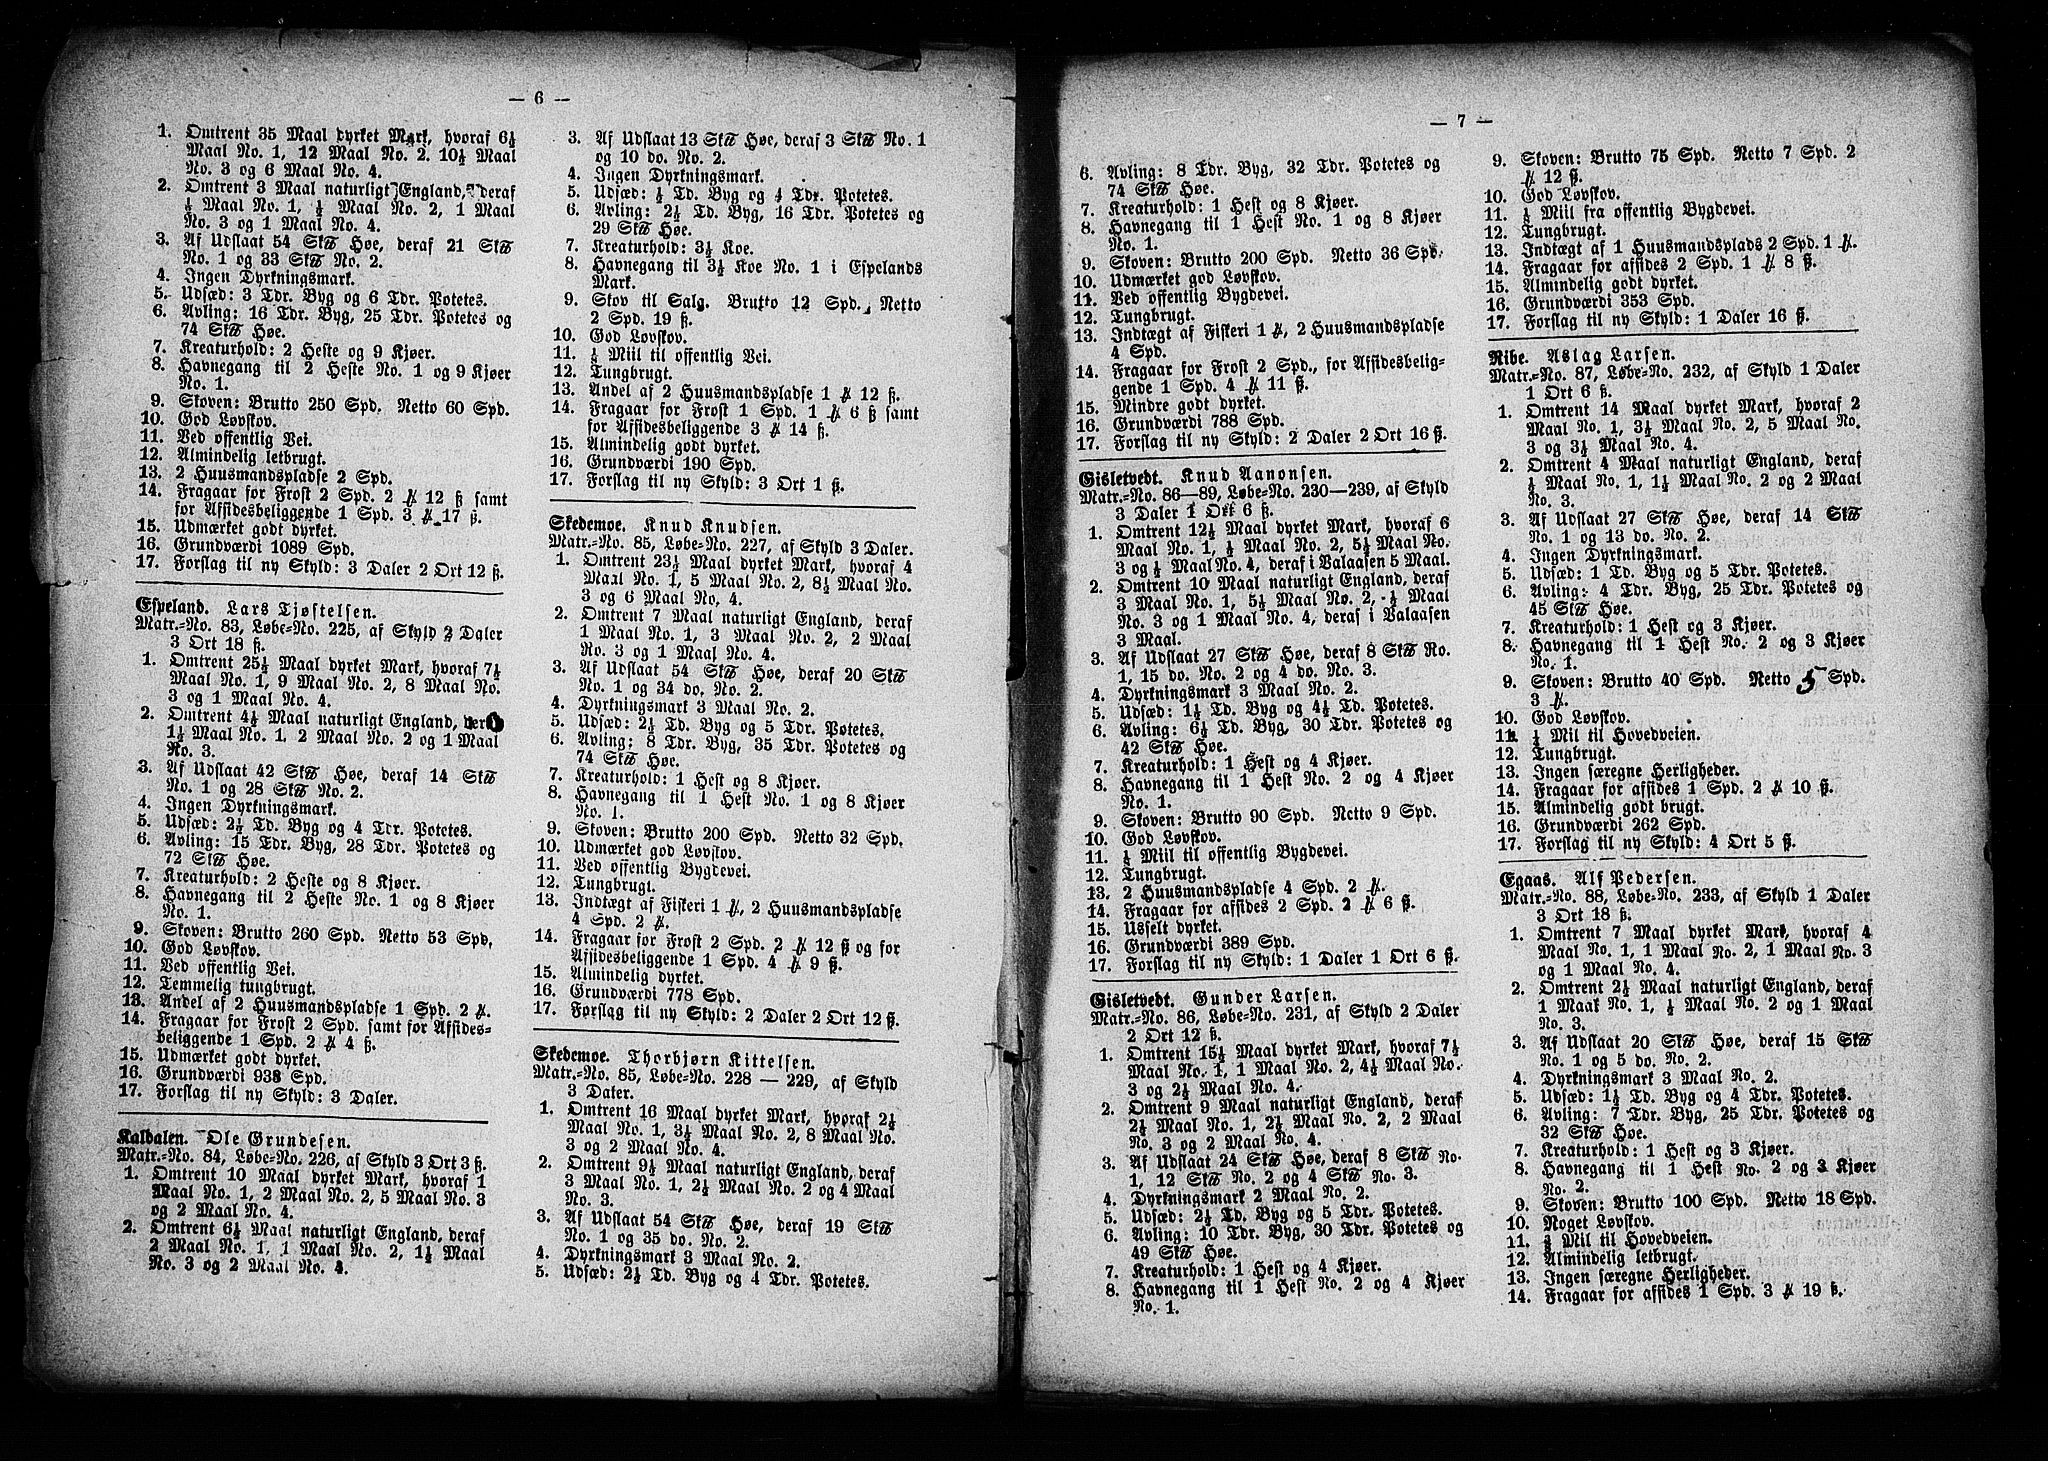 — 6 —
1. Omtrent 35 Maal dyrket Mark, hvoraf 6½
Maal No. 1, 12 Maal No. 2. 10½ Maal
No. 3 og 6 Maal No. 4.
2. Omtrent 3 Maal naturligt England, deraf
½ Maal No. 1, ½ Maal No. 2, 1 Maal
No. 3 og 1 Maal No. 4.
3. Af Udslaat 54 Sk℔ Høe, deraf 21 Sk℔
No. 1 og 33 Sk℔ No. 2.
4. Ingen Dyrkningsmark.
5. Udsæd: 3 Tdr. Byg og 6 Tdr. Potetes.
6. Avling: 16 Tdr. Byg, 25 Tdr. Potetes og
74 Sk℔ Høe.
7. Kreaturhold: 2 Heste og 9 Kjøer.
8. Havnegang til 2 Heste No. 1 og 9 Kjøer
No. 1.
9. Skoven: Brutto 250 Spd. Netto 60 Spd.
10. God Løvskov.
11. Ved offentlig Vei.
12. Almindelig letbrugt.
13. 2 Huusmandspladse 2 Spd.
14. Fragaar for Frost 2 Spd. 2 ℳ 12 ß samt
for Afsidesbeliggende 1 Spd. 3 ℳ 17 ß.
15. Udmærket godt dyrket.
16. Grundværdi 1089 Spd.
17. Forslag til ny Skyld: 3 Daler 2 Ort 12 ß.
Espeland. Lars Tjøstelsen.
Matr.=No. 83, Løbe=No. 225, af Skyld 2 Daler
3 Ort 18 ß.
1. Omtrent 25½ Maal dyrket Mark, hvoraf 7½
Maal No. 1, 9 Maal No. 2, 8 Maal No.
3 og 1 Maal No. 4.
2. Omtrent 4½ Maal naturligt England,
1½ Maal No. 1, 2 Maal No. 2 og 1 Maal
No. 3.
3. Af Udslaat 42 Sk℔ Høe, deraf 14 Sk℔
No. 1 og 28 Sk℔ No. 2.
4. Ingen Dyrkningsmark.
5. Udsæd: 2½ Td. Byg og 4 Tdr. Potetes.
6. Avling: 15 Tdr. Byg, 28 Tdr. Potetes og
72 Sk℔ Høe.
7. Kreaturhold: 2 Heste og 8 Kjøer.
8. Havnegang til 2 Heste No. 1 og 8 Kjøer
No. 1.
9. Skoven: Brutto 260 Spd. Netto 53 Spd.
10. God Løvskov.
11. Ved offentlig Vei.
12. Temmelig tungbrugt.
13. Andel af 2 Huusmandspladse 1 Spd. 2 ℳ.
14. Fragaar for Frost 2 Spd. samt for Afsides=
beliggende 1 Spd. 2 ℳ 4 ß.
15. Udmærket godt dyrket.
16. Grundværdi 938 Spd.
17. Forslag til ny Skyld: 3 Daler.
Kaldalen. Ole Grundesen.
Matr.=No. 84, Løbe=No. 226, af Skyld 3 Ort 3 ß.
1. Omtrent 10 Maal dyrket Mark, hvoraf 1
Maal No. 1, 2 Maal No. 2, 5 Maal No. 3
og 2 Maal No. 4.
2. Omtrent 6½ Maal naturligt England, deraf
2 Maal No. 1, 1 Maal No. 2, 1½ Maal
No. 3 og 2 Maal No. 4.
3. Af Udslaat 13 Sk℔ Høe, deraf 3 Sk℔ No. 1
og 10 do. No. 2.
4. Ingen Dyrkningsmark.
5. Udsæd: ½ Td. Byg og 4 Tdr. Potetes.
6. Avling: 2½ Td. Byg, 16 Tdr. Potetes og
29 Sk℔ Høe.
7. Kreaturhold: 3½ Koe.
8. Havnegang til 3½ Koe No. 1 i Espelands
Mark.
9. Skov til Salg. Brutto 12 Spd. Netto
2 Spd. 19 ß.
10. God Løvskov.
11. Miil til offentlig Vei.
12. Tungbrugt.
13. Andel af 2 Huusmandspladse 1 ℳ 12 ß.
14. Fragaar for Frost 1 Spd. 1 ℳ 6 ß samt
for Afsidesbeliggende 3 ℳ 14 ß.
15. Almindelig godt dyrket.
16. Grundværdi 190 Spd.
17. Forslag til ny Skyld: 3 Ort 1 ß.
Skedemoe. Knud Knudsen.
Matr.=No. 85, Løbe=No. 227, af Skyld 3 Daler.
1. Omtrent 23½ Maal dyrket Mark, hvoraf 4
Maal No. 1, 5 Maal No. 2, 8½ Maal No.
3 og 6 Maal No. 4.
2. Omtrent 7 Maal naturligt England, deraf
1 Maal No. 1, 3 Maal No. 2, 2 Maal
No. 3 og 1 Maal No. 4.
3. Af Udslaat 54 Sk℔ Høe, deraf 20 Sk℔
No. 1 og 34 do. No. 2.
4. Dyrkningsmark 3 Maal No. 2.
5. Udsæd: 2½ Td. Byg og 5 Tdr. Potetes.
6. Avling: 8 Tdr. Byg, 35 Tdr. Potetes og
74 Sk℔ Høe.
7. Kreaturhold: 1 Hest og 8 Kjøer.
8. Havnegang til 1 Hest No. 1 og 8 Kjøer
No. 1.
9. Skoven: Brutto 200 Spd. Netto 32 Spd.
10. Udmærket god Løvskov.
11. Ved offentlig Bygdevei.
12. Tungbrugt.
13. Indtægt af Fiskeri 1 ℳ, 2 Huusmandspladse
4 Spd. 2 ℳ.
14. Fragaar for Frost 2 Spd. 2 ℳ 12 ß og for
Afsidesbeliggende 1 Spd. 4 ℳ 9 ß.
15. Almindelig dyrket.
16. Grundværdi 778 Spd.
17. Forslag til ny Skyld: 2 Daler 2 Ort 12 ß.
Skedemoe. Thorbjørn Kittelsen.
Matr.=No. 85, Løbe=No. 228 — 229, af Skyld
3 Dater.
1. Omtrent 16 Maal dyrket Mark, hvoraf 2½
Maal No. 1, 3½ Maal No. 2, 8 Maal No.
3 og 2 Maal No. 4.
2. Omtrent 9½ Maal naturligt England, deraf
3 Maal No. 1, 2½ Maal No. 2 og 4 Maal
No. 3.
3. Af Udslaat 54 Sk℔ Høe, deraf 19 Sk℔
No. 1 og 35 do. No. 2.
4. Dyrkningsmark 3 Maal No. 2.
5. Udsæd: 2½ Td. Byg og 4 Tdr. Potetes.
— 7 —
6. Avling: 8 Tdr. Byg, 32 Tdr. Potetes og
74 Sk℔ Høe.
7. Kreaturhold: 1 Hest og 8 Kjøer.
8. Havnegang til 1 Hest No. 1 og 8 Kjøer
No. 1.
9. Skoven: Brutto 200 Spd. Netto 36 Spd.
10. Udmærket god Løvskov.
11. Ved offentlig Bygdevei.
12. Tungbrugt.
13. Indtægt af Fiskeri 1 ℳ, 2 Huusmandspladse
4 Spd.
14. Fragaar for Frost 2 Spd., for Afsidesbelig=
gende 1 Spd. 4 ℳ 11 ß.
15. Mindre godt dyrket.
16. Grundværdi 788 Spd.
17. Forslag til ny Skyld: 2 Daler 2 Ort 16 ß.
Gisletvedt. Knud Aanonsen.
Matr.=No. 86—89, Løbe=No. 230—239, af Skyld
3 Daler 1 Ort 6 ß.
1. Omtrent 12½ Maal dyrket Mark, hvoraf 6
Maal No. 1, ½ Maal No. 2, 5½ Maal No.
3 og ½ Maal No. 4, deraf i Valaasen 5 Maal.
2. Omtrent 10 Maal naturligt England, deraf
3 Maal No. 1, 5½ Maal No. 2, ½ Maal
No. 3 og 1 Maal No. 4, deraf i Valaasen
3 Maal.
3. Af Udslaat 27 Sk℔ Høe, deraf 8 Sk℔ No.
1, 15 do. No. 2 og 4 do. No. 3.
4. Dyrkningsmark 3 Maal No. 2.
5. Udsæd: 1½ Td. Byg og 4½ Td. Potetes.
6. Avling: 6½ Td. Byg, 30 Tdr. Potetes og
42 Sk℔ Høe.
7. Kreaturhold: 1 Hest og 4 Kjøer.
8. Havnegang til 1 Hest No. 2 og 4 Kjøer
No. 1.
9. Skoven: Brutto 90 Spd. Netto 9 Spd.
10. God Løvskov.
11. Miil til offentlig Bygdevei.
12. Tungbrugt.
13. 2 Huusmandspladse 4 Spd. 2 ℳ.
14. Fragaar for afsides 2 Spd. 2 ℳ 6 ß.
15. Usselt dyrket.
16. Grundværdi 389 Spd.
17. Forslag til ny Skyld: 1 Daler 1 Ort 6 ß.
Gisletvedt. Gunder Larsen.
Matr.=No. 86, Løbe=No. 231, af Skyld 2 Daler
2 Ort 12 ß.
1. Omtrent 15½ Maal dyrket Mark, hvoraf 7½
Maal No. 1, 1 Maal No. 2, 4½ Maal No.
3 og 2½ Maal No. 4.
2. Omtrent 9 Maal naturligt England, deraf
2½ Maal No. 1, 2½ Maal No. 2, 2 Maal
No. 3 og 2 Maal No. 4.
3. Af Udslaat 24 Sk℔ Høe, deraf 8 Sk℔ No.
1, 12 Sk℔ No. 2 og 4 Sk℔ No. 3.
4. Dyrkningsmark 2 Maal No. 2.
5. Udsæd: 2½ Td. Byg og 5 Tdr. Potetes.
6. Avling: 10 Tdr. Byg, 30 Tdr. Potetes og
49 Sk℔ Høe.
7. Kreaturhold: 1 Hest og 4 Kjøer.
8. Havnegang til 1 Hest No. 2 og 4 Kjøer
No. 1.
9. Skoven: Brutto 75 Spd. Netto 7 Spd. 2
ℳ 12 ß.
10. God Løvskov.
11. Miil fra offentlig Bygdevei.
12. Tungbrugt.
13. Indtægt af 1 Huusmandsplads 2 Spd. 1 ℳ.
14. Fragaar for afsides 2 Spd. 1 ℳ 8 ß.
15. Almindelig godt dyrket.
16. Grundværdi 353 Spd.
17. Forslag til ny Skyld: 1 Daler 16 ß.
Ribe. Aslag Larsen.
Matr.=No. 87, Løbe=No. 232, af Skyld 1 Daler
1 Ort 6 ß.
1. Omtrent 14 Maal dyrket Mark, hvoraf 2
Maal No. 1, 3½ Maal No. 2, 5 Maal No.
3 og 3½ Maal No. 4.
2. Omtrent 4 Maal naturligt England, deraf
½ Maal No. 1, 1½ Maal No. 2 og 2 Maal
No. 3.
3. Af Udslaat 27 Sk℔ Høe, deraf 14 Sk℔
No. 1 og 13 do. No. 2.
4. Ingen Dyrkningsmark.
5. Udsæd: 1 Td. Byg og 5 Tdr. Potetes.
6. Avling: 4 Tdr. Byg, 25 Tdr. Potetes og
45 Sk℔ Høe.
7. Kreaturhold: 1 Hest og 3 Kjøer.
8. Havnegang til 1 Hest No. 2 og 3 Kjøer
No. 1.
9. Skoven: Brutto 40 Spd. Netto 5 Spd.
3 ℳ.
10. God Løvskov.
11. Mil til Hovedveien.
12. Tungbrugt.
13. Ingen særegne Herligheder.
14. Fragaar for afsides 1 Spd. 2 ℳ 10 ß.
15. Almindelig godt brugt.
16. Grundværdi 262 Spd.
17. Forslag til ny Skyld: 4 Ort 5 ß.
Egaas. Alf Pedersen.
Matr.=No. 88, Løbe=No. 233, af Skyld 1 Daler
3 Ort 18 ß.
1. Omtrent 7 Maal dyrket Mark, hvoraf 4
Maal No. 1, 1 Maal No. 2, 1 Maal No. 3
og 1 Maal No. 4.
2. Omtrent 2½ Maal naturligt England, deraf
1 Maal No. 1, ½ Maal No. 2 og 1 Maal
No. 3.
3. Af Udslaat 20 Sk℔ Høe, deraf 15 Sk℔
No. 1 og 5 do. No. 2.
4. Dyrkningsmark 3 Maal No. 2.
5. Udsæd: 1½ Td. Byg og 4 Tdr. Potetes.
6. Avling: 7 Tdr. Byg, 25 Tdr. Potetes og
32 Sk℔ Høe.
7. Kreaturhold: 1 Hest og 3 Kjøer.
8. Havnegang til 1 Hest No. 2 og 3 Kjøer
No. 2.
9. Skoven: Brutto 100 Spd. Netto 18 Spd.
10. Noget Løvskov.
11. Mil til Hovedveien.
12. Almindelig letbrugt.
13. Ingen særegne Herligheder.
14. Fragaar for afsides 1 Spd. 3 ℳ 19 ß.